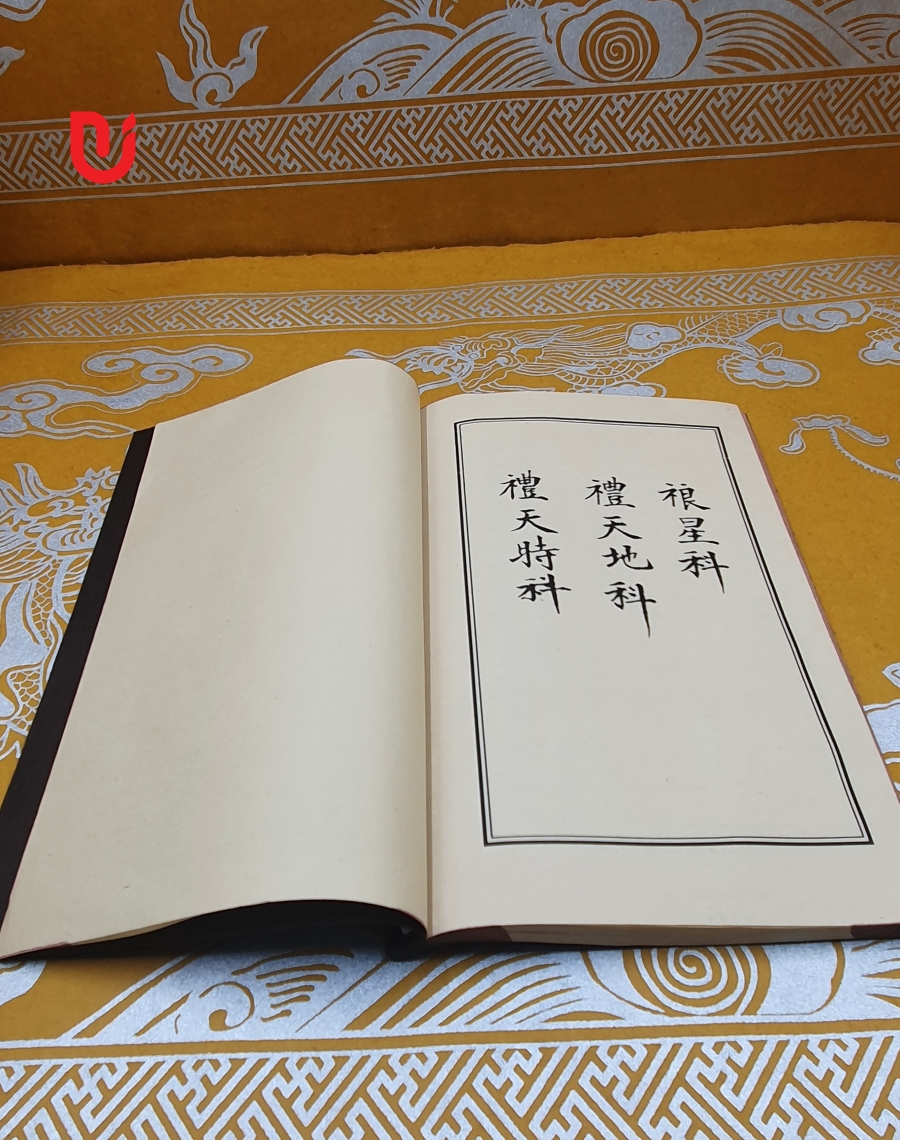 星科
禮天地科
禮天時科